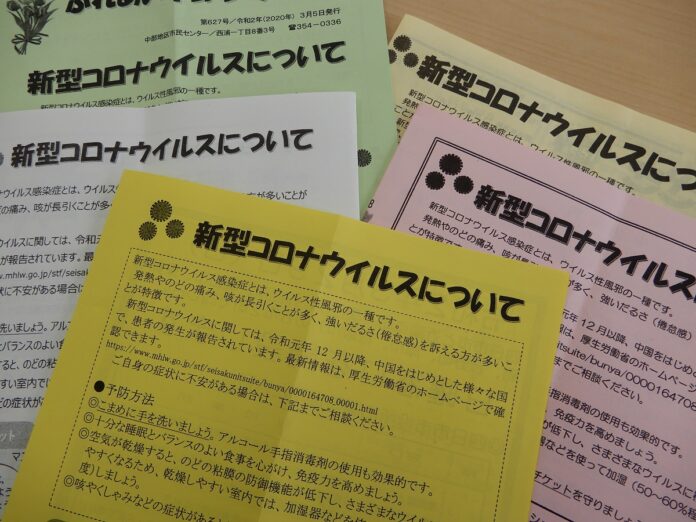 第627号／令和2年(2020年) 3月5日発行
中部地区市民センター／西浦一丁目8番3号 ☎354-0336
新型コロナウイルスについて
新型コロナウイルス感染症とは、ウイルス性風邪の一種です。
新型コロナウイルスについて
新型コロナウイルス感染症とは、ウイルス性風邪の一種です。
新型コロナウイルスについて
ウイルス感染症とは、ウイルス
の痛み、咳が長引くことが多
が多いことが
イルスに関しては、令和元
が報告されています。最
www.mhlw.go.jp/stf/seisaku
状に不安がある場合は
洗いましょう。アルコ
とバランスのよい食事
すると、のどの粘
すい室内では、
新型コロナウイルスについて
新型コロナウイルス感染症とは、ウイルス性風邪の一種です。
発熱やのどの痛み、咳が長引くことが多く、強いだるさ(倦怠感)
とが特徴です。
元年 12 月以降、中国をはじめ
は、厚生労働省のホーム
nitsuite/bunya/0000164708
までご相談ください。
指消毒剤の使用も効果的です。
、免疫力を高めましょう。
が低下し、さまざまなウイルスに
器などを使って加湿(50～60%程
チケットを守りましょ
新型コロナウイルスについて
新型コロナウイルス感染症とは、ウイルス性風邪の一種です。
発熱やのどの痛み、咳が長引くことが多く、強いだるさ(倦怠感)を訴える方が多いこ
とが特徴です。
新型コロナウイルスに関しては、令和元年 12 月以降、中国をはじめとした様々な国
で、患者の発生が報告されています。最新情報は、厚生労働省のホームページで確
認できます。
https://www.mhlw.go.jp/stf/seisakunitsuite/bunya/0000164708_00001.html
ご自身の症状に不安がある場合は、下記までご相談ください。
●予防方法
◎こまめに手を洗いましょう。アルコール手指消毒剤の使用も効果的です。
◎十分な睡眠とバランスのよい食事を心がけ、免疫力を高めましょう。
◎空気が乾燥すると、のどの粘膜の防御機能が低下し、さまざまなウイル
やすくなるため、乾燥しやすい室内では、加湿器などを
度)しましょう。
◎咳やくしゃみなどの症状があ